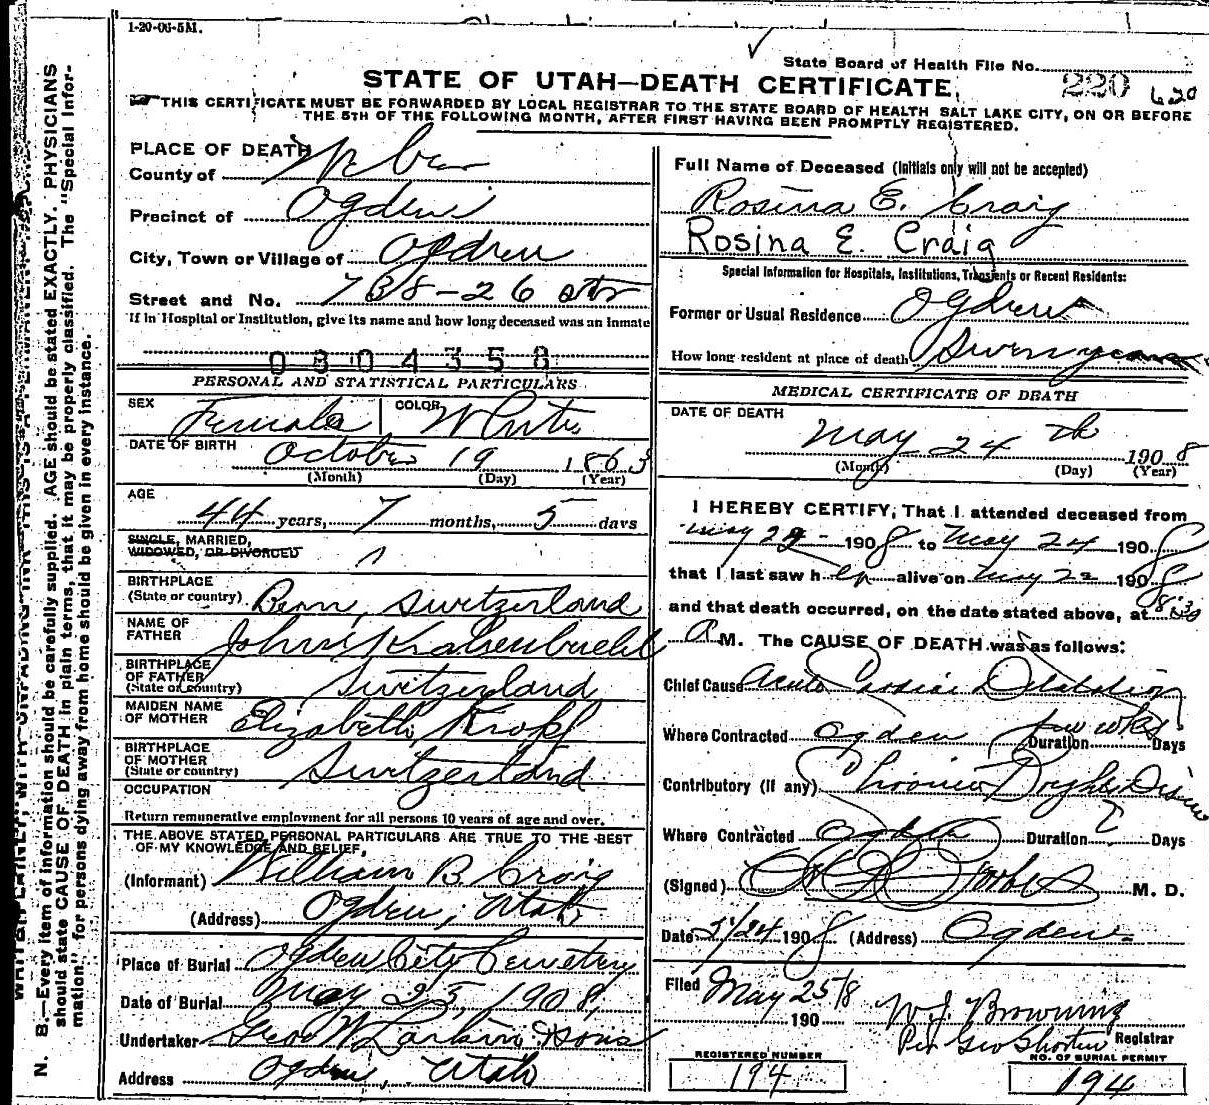 1-20-06-5M.
State Board of Health File No.
220 620
STATE OF UTAH—DEATH CERTIFICATE.
THIS CERTIFICATE MUST BE FORWARDED BY LOCAL REGISTRAR TO THE STATE BOARD OF HEALTH SALT LAKE CITY, ON OR BEFORE
THE 5TH OF THE FOLLOWING MONTH, AFTER FIRST HAVING BEEN PROMPTLY REGISTERED.
PLACE OF DEATH
County of Weber
Precinct of Ogden
City, Town or Village of Ogden
Street and No. 738-26 str
If in Hospital or Institution, give its name and how long deceased was an inmate
0804358
PERSONAL AND STATISTICAL PARTICULARS
SEX Female COLOR White
DATE OF BIRTH October 19 1863
(Month) (Day) (Year)
AGE
44 years, 7 months, 5 days
SINGLE, MARRIED,
WIDOWED, OR DIVORCED
BIRTHPLACE
(State or country) Bern, Switzerland
NAME OF
FATHER John
BIRTHPLACE
OF FATHER
(State or country) Switzerland
MAIDEN NAME
OF MOTHER Elizabeth Kropf
BIRTHPLACE
OF MOTHER
(State or country) Switzerland
OCCUPATION
Return remunerative employment for all persons 10 years of age and over.
THE ABOVE STATED PERSONAL PARTICULARS ARE TRUE TO THE BEST
OF MY KNOWLEDGE AND BELIEF.
(Informant) William B. Craig
(Address) Ogden, Utah
Place of Burial Ogden City Cemetery
Date of Burial May 25, 1908
Undertaker Geo W Larkin & Sons
Address Ogden, Utah
Full Name of Deceased (Initials only will not be accepted)
Rosina E. Craig
Rosina E. Craig
Special Information for Hospitals, Institutions, Transients or Recent Residents:
Former or Usual Residence Ogden
How long resident at place of death Seven years
MEDICAL CERTIFICATE OF DEATH
DATE OF DEATH
May 24 th 1908
(Month) (Day) (Year)
I HEREBY CERTIFY, That I attended deceased from
May 1908 to May 24 1908
that I last saw h er alive on May 1908
and that death occurred, on the date stated above, at 8:30
A M. The CAUSE OF DEATH was as follows:
Chief Cause Acute Cardiac Dilatation
Where Contracted Ogden Duration few wks Days
Contributory (if any) Chronic Brights Disease
Where Contracted Ogden Duration ? Days
(Signed) M. D.
Date 5/24 1908 (Address) Ogden
Filed May 25/8 190 W. J. Browning
Per Geo Shorten Registrar
REGISTERED NUMBER
194
NO. OF BURIAL PERMIT
194
N. B.—Every item of information should be carefully supplied. AGE should be stated EXACTLY. PHYSICIANS
should state CAUSE OF DEATH in plain terms, that it may be properly classified. The "Special Infor-
mation" for persons dying away from home should be given in every instance.